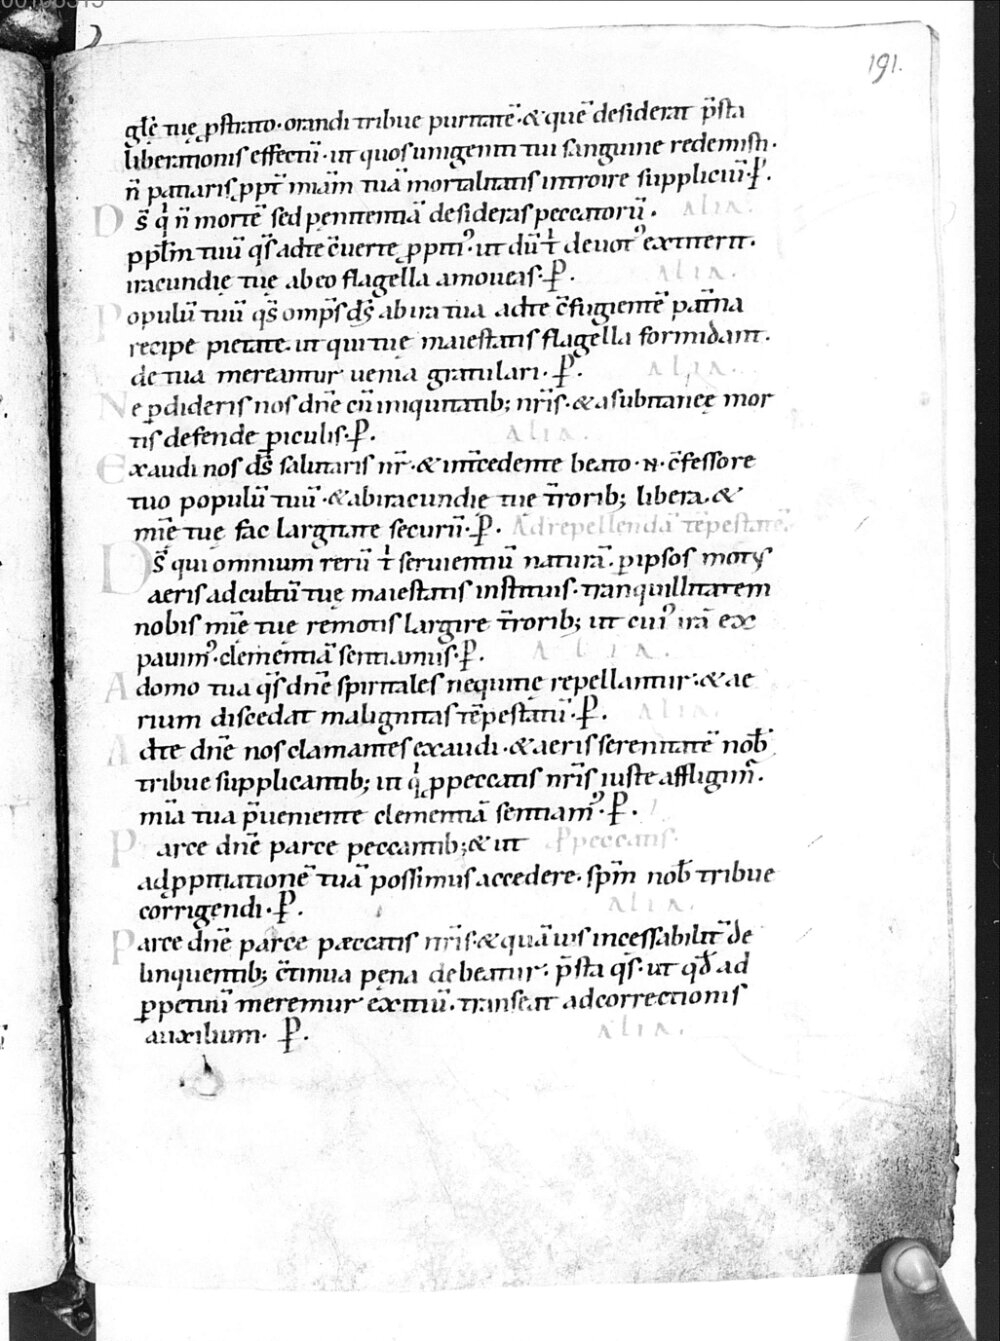 191.
gl̄ę tuę ꝓstrato· orandi tribue puritatē· & quē desiderat p̄sta
liberationis effectū· ut quos unigeniti tui sanguine redemisti·
n̄ patiaris ꝓpt̄ miām tuā mortalitatis introire suppliciū· P̱.
D s̄ q' n̄ mortē sed penitentiā desideras peccatorū. alia.
ppl̄m tuū q̄s adte c̄uerte ꝓpiti᾽ ut dū t' deuot᾽ extiterit.
iracundię tuę abeo flagella amoueas· P̱. alia.
Populū tuū q̄s omp̄s d̄s abira tua adte c̄fugientē pat̄na
recipe pietate· ut qui tuę maiestatis flagella formidant·
de tua mereantur uenia gratulari· P̱. alia.
Ne ꝑdideris nos dn̄e cū iniquitatib; nr̄is· & a subitaneę mor
tis defende ꝑiculis· P̱. alia.
Exaudi nos d̄s salutaris nr̄· & int̄cedente beato· N· c̄fessore
tuo populū tuū· & abiracundię tuę t̄rorib; libera· &
mīę tuę fac largitate securū· P̱. Adrepellendā tēpestatē.
D s̄ qui omnium rerū t' seruientiū naturā· ꝑipsos motꝰ
aeris ad cultū tuę maiestatis instituis· tranquillitatem
nobis mīę tuę remotis largire t̄rorib; ut cui᾽ irā ex
pauim᾽· clementiā sentiamus· P̱. alia.
A domo tua q̄s dn̄e spiritales nequitię repellantur· & ae
rium discedat malignitas tēpestatū· P̱. alia.
Adte dn̄e nos clamantes exaudi· & aeris serenitatē nob̄
tribue supplicantib; ut q' ꝓpeccatis nr̄is iuste affligim̄·
mīa tua p̄ueniente clementiā sentiam᾽· P̱.
Parce dn̄e parce peccantib; & ut ꝓpeccatis.
ad ꝓpitiationē tuā possimus accedere· sp̄m nob̄ tribue
corrigendi· P̱. alia.
Parce dn̄e parce pæccatis nr̄is· & quāuis incessabilit̄ de
linquentib; c̄tinua pęna debeatur· p̄sta q̄s· ut qđ ad
ꝑpetuū meremur exitiū· transeat ad correctionis
auxilium· P̱. alia.